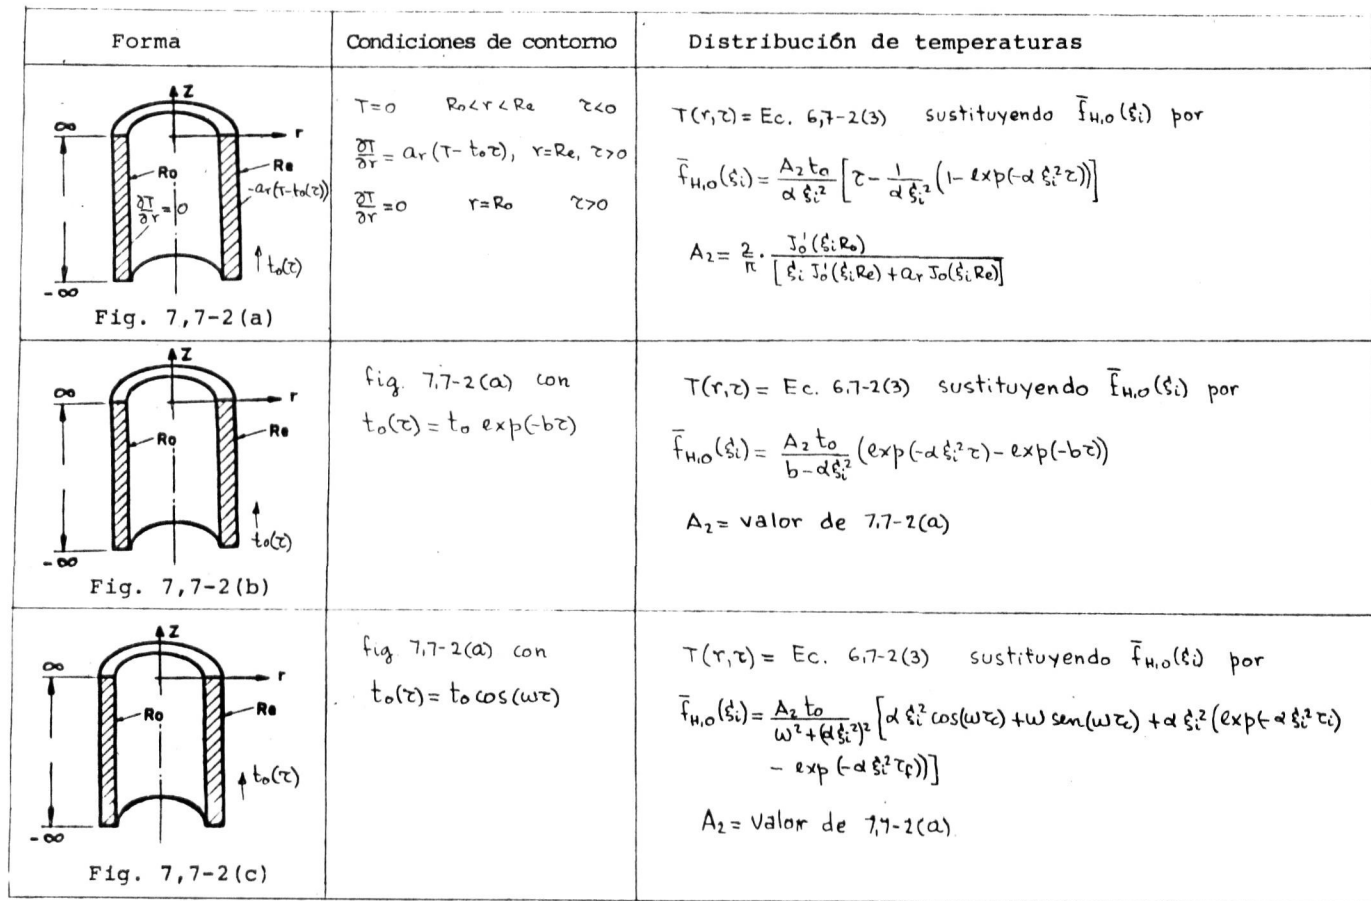 Forma
Condiciones de contorno
Distribución de temperaturas
Z
∞
r
Ro
Re
-ar(T-to(τ))
∂T/∂r = 0
to(τ)
-∞
Fig. 7,7-2(a)
T=0 Ro<r<Re τ<0
∂T/∂r = ar(T-toτ), r=Re, τ>0
∂T/∂r =0 r=Ro τ>0
T(r,τ) = Ec. 6,7-2(3) sustituyendo f̄H,0(ξi) por
f̄H,0(ξi) = A2 to/αξi² [τ - 1/αξi² (1-exp(-αξi²τ))]
A2 = 2/π · Jo'(ξiRo)/[ξi Jo'(ξiRe) + ar Jo(ξiRe)]
Z
∞
r
Ro
Re
to(τ)
-∞
Fig. 7,7-2(b)
fig. 7,7-2(a) con
to(τ) = to exp(-bτ)
T(r,τ) = Ec. 6,7-2(3) sustituyendo f̄H,0(ξi) por
f̄H,0(ξi) = A2 to/b-αξi² (exp(-αξi²τ) - exp(-bτ))
A2 = valor de 7,7-2(a)
Z
∞
r
Ro
Re
to(τ)
-∞
Fig. 7,7-2(c)
fig 7,7-2(a) con
to(τ) = to cos(ωτ)
T(r,τ) = Ec. 6,7-2(3) sustituyendo f̄H,0(ξi) por
f̄H,0(ξi) = A2 to/ω²+(αξi²)² [αξi² cos(ωτ) + ω sen(ωτ) + αξi² (exp(-αξi²τi)
- exp(-αξi²τf))]
A2 = Valor de 7,7-2(a)